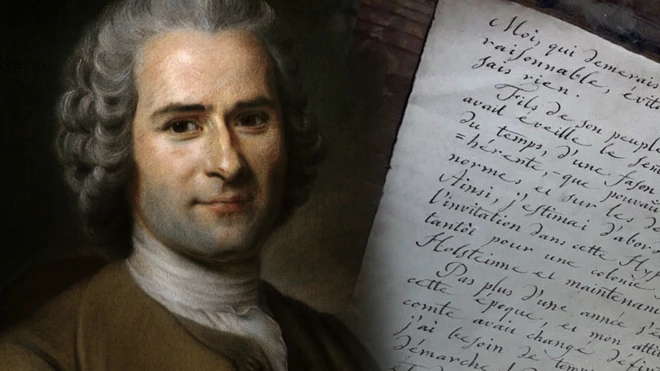 Moi, qui demerais
raisonnable, évit
sais rien.
Fils de son peuple
avait éveillé le sen
du temps, d'une fason
=hérente, que pouvai
norme, et sur les de
Ainsi, j'estimai d'abor
l'invitation dans cette Hyp
tantôt pour une colonie
Holsteinne et maintenan
Pas plus d'une année s'é
cette époque, et mon atti
comte avait changé défin
j'ai besoin de temps
démarche